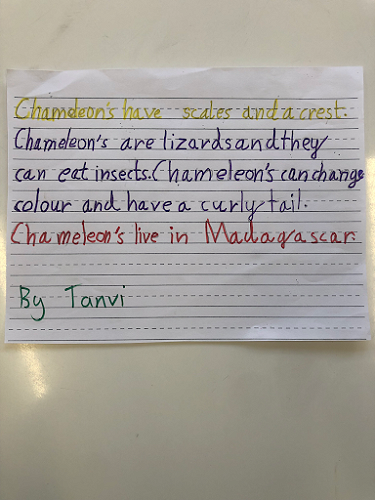 Chameleon's have scales and a crest.
Chameleon's are lizards and they
can eat insects. Chameleon's can change
colour and have a curly tail.
Chameleon's live in Madagascar.
By Tanvi